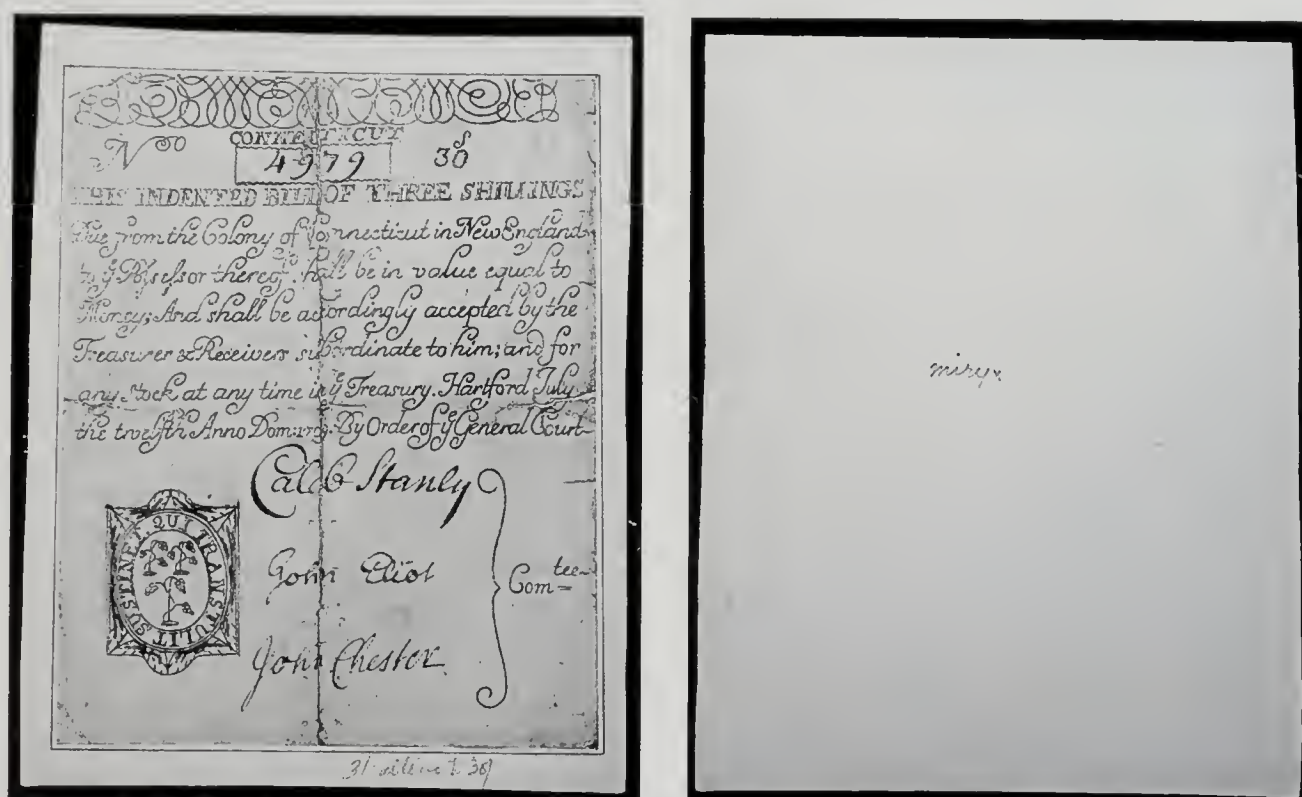 CONNECTICUT
No 4979 30s
THIS INDENTED BILL OF THREE SHILLINGS
Due from the Colony of Connecticut in New England
to ye Possessor thereof shall be in value equal to
Money; And shall be accordingly accepted by the
Treasurer & Receivers subordinate to him; and for
any Stock at any time in ye Treasury. Hartford July
the twelfth Anno Dom: By Order of ye General Court
Caleb Stanly
John Eliot
John Chester
Comtee
SUSTINET QUI TRANSTULIT